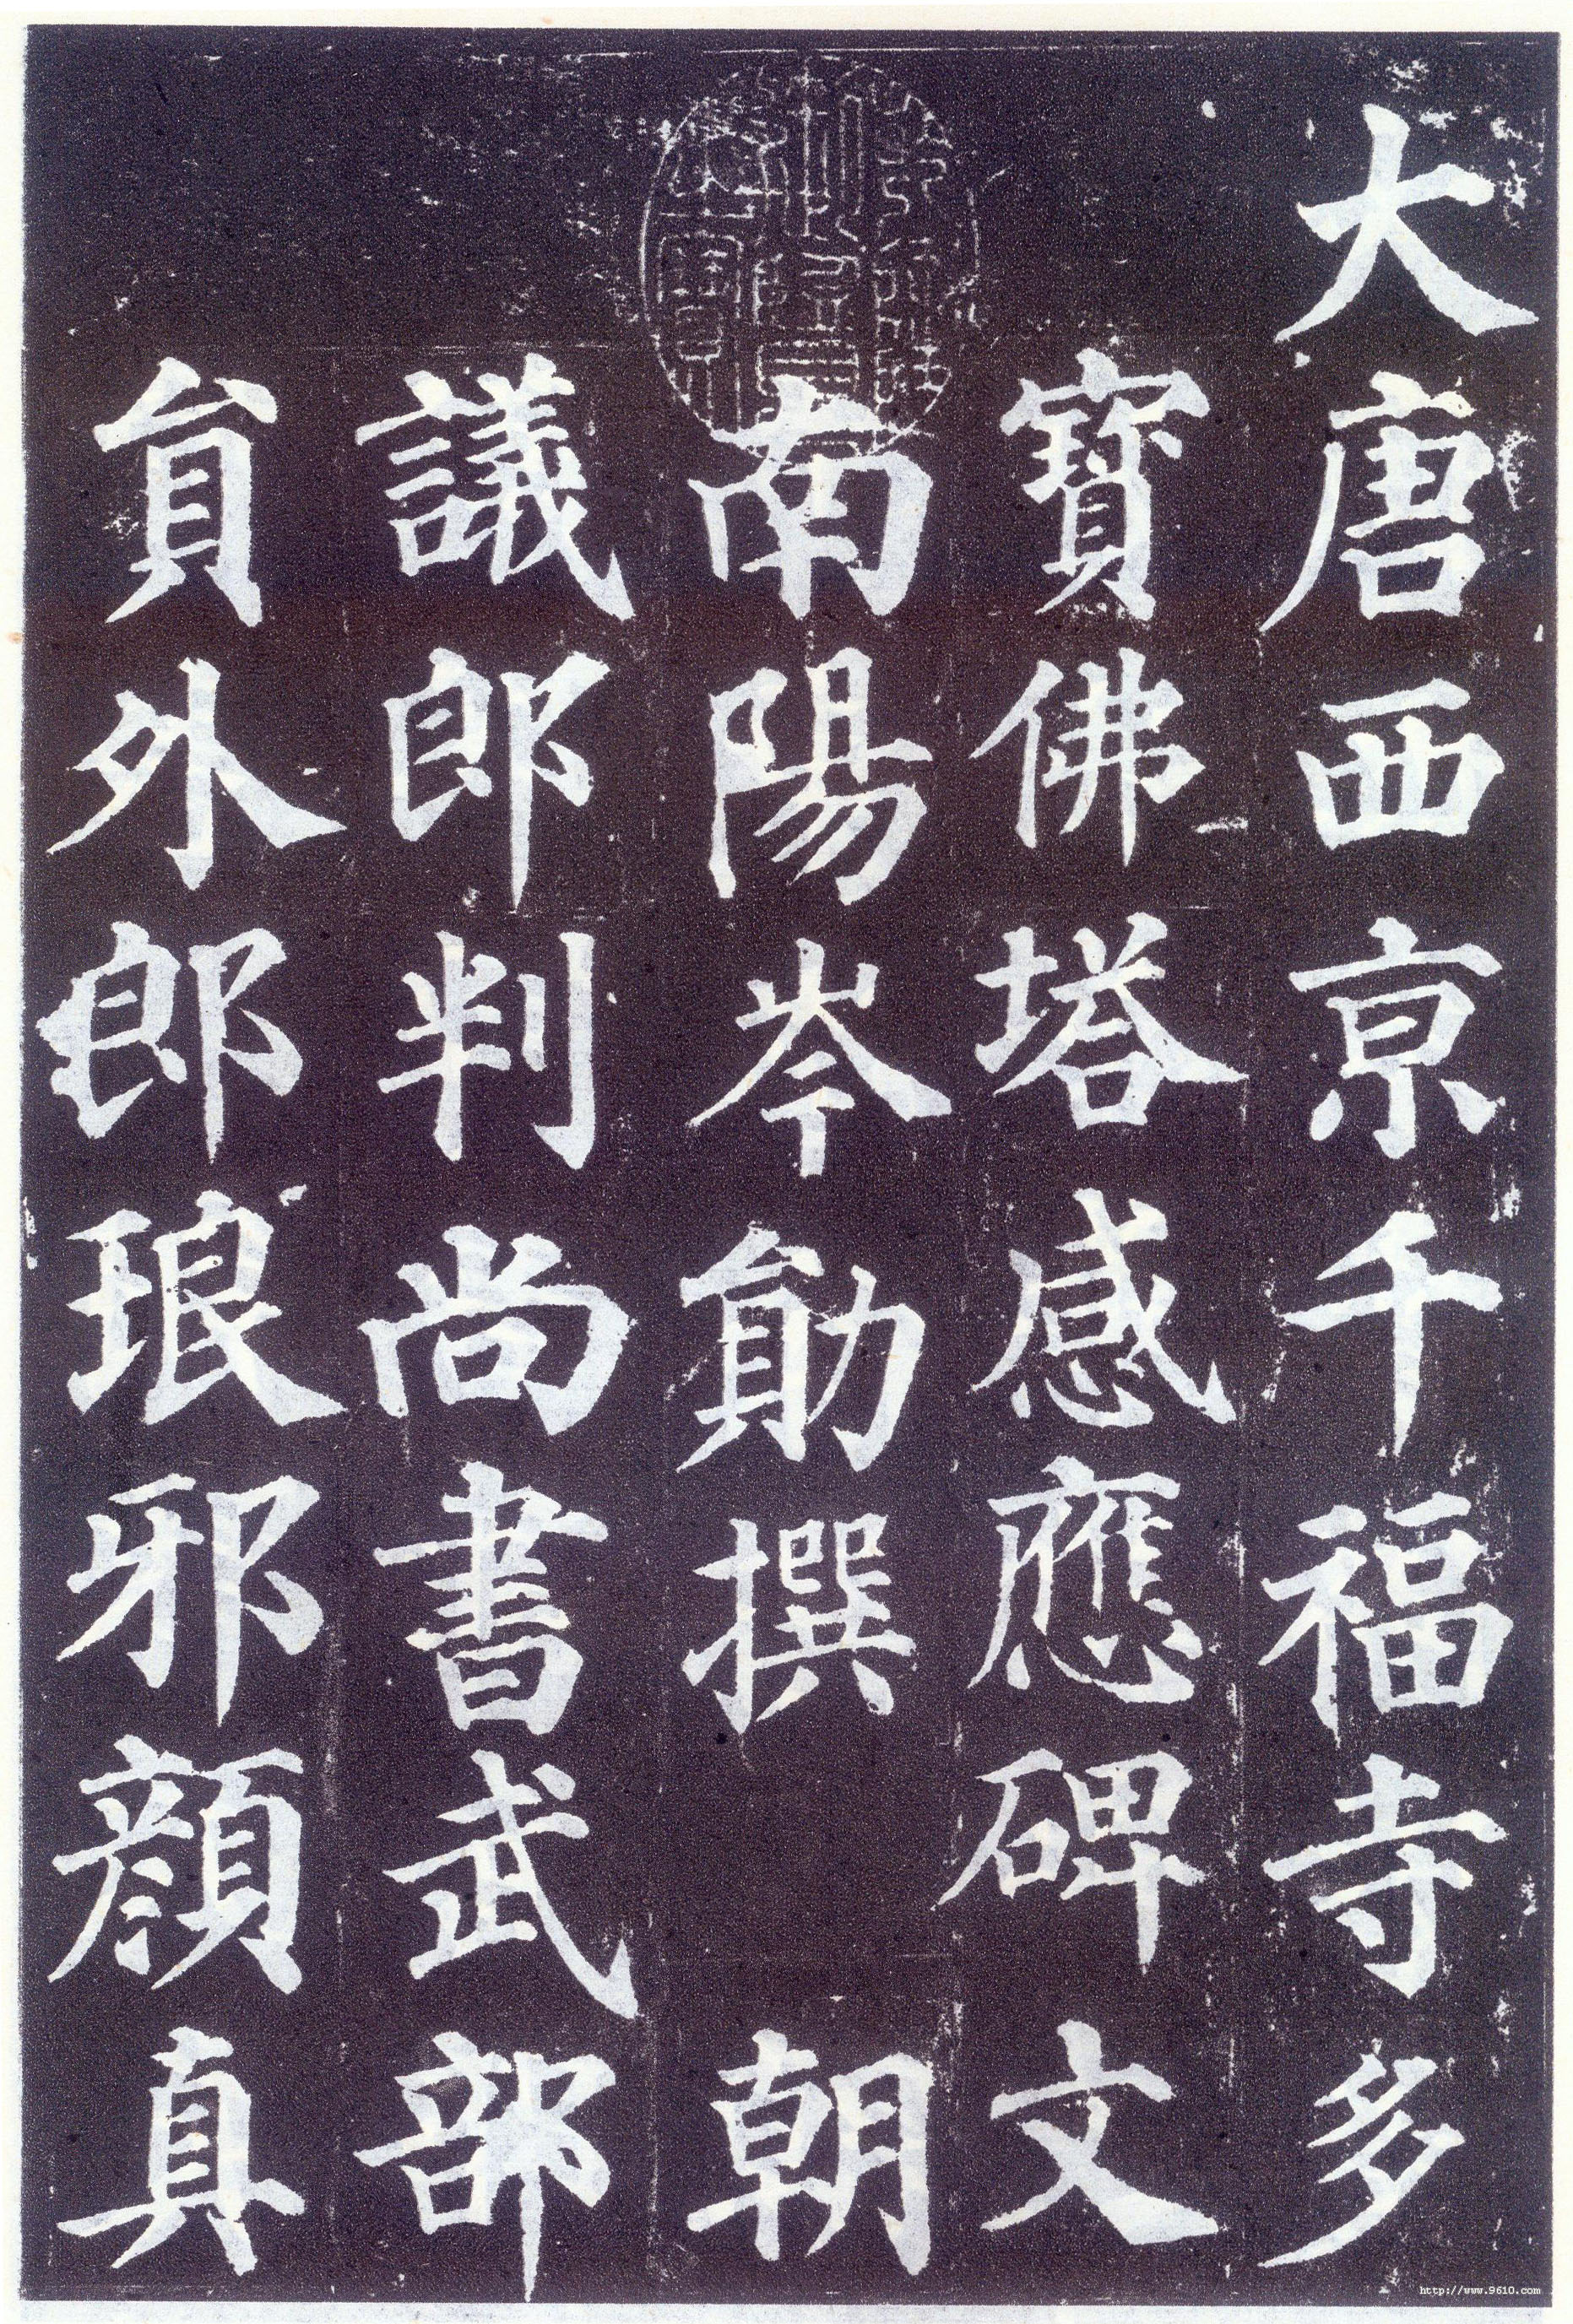 大唐西京千福寺多
寶佛塔感應碑文
南陽岑勛撰 朝
議郎判尚書武部
員外郎琅邪顏真
http://www.9610.com